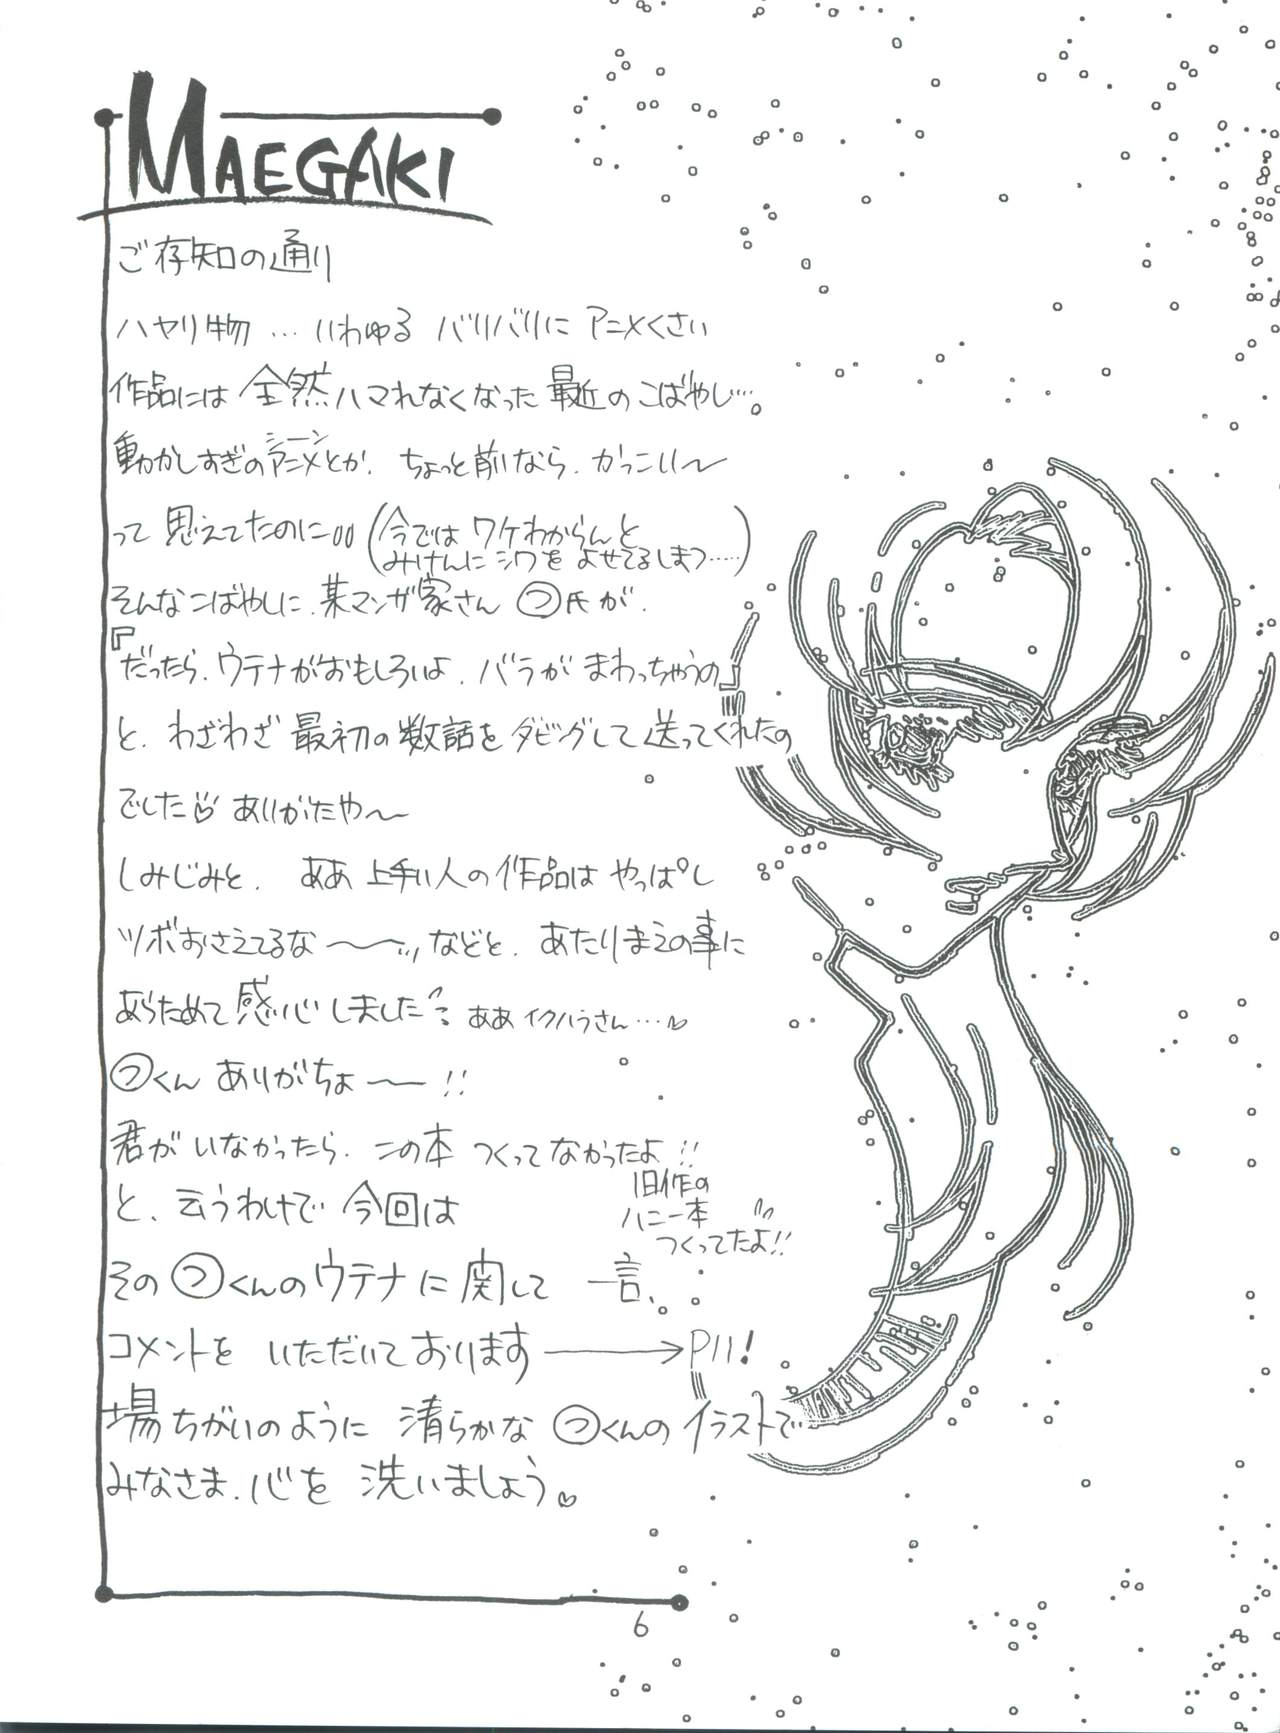 MAEGAKI
ご存知の通り
ハヤリ物…いわゆる バリバリに アニメくさい
作品には 全然ハマれなくなった 最近の こばやし…。
動かしすぎのアニメとか、ちょっと前なら、かっこい〜
シーン
って 思えてたのに
(今では ワケわからんと
みけんに シワを よせてるしまつ……)
そんなこばやしに、某マンガ家さん ㋡氏が、
『だったら、ウテナがおもしろいよ、バラが まわっちゃうの』
と、わざわざ 最初の数話を ダビングして 送ってくれたの
でした♡ ありがたや〜
しみじみと、 ああ 上手い人の作品は やっぱし
ツボおさえてるな〜〜 などと、あたりまえの事に
あらためて 感心しました ああ イクハラさん…♡
㋡くん ありがちょ〜!!
君が いなかったら、この本 つくってなかったよ!!
旧作の
ハニー本
つくってたよ!!
と、云うわけで 今回は
その ㋡くんのウテナに 関して 一言、
コメントを いただいております → P11!
場ちがいのように 清らかな ㋡くんの イラストで
みなさま、心を 洗いましょう♡
6